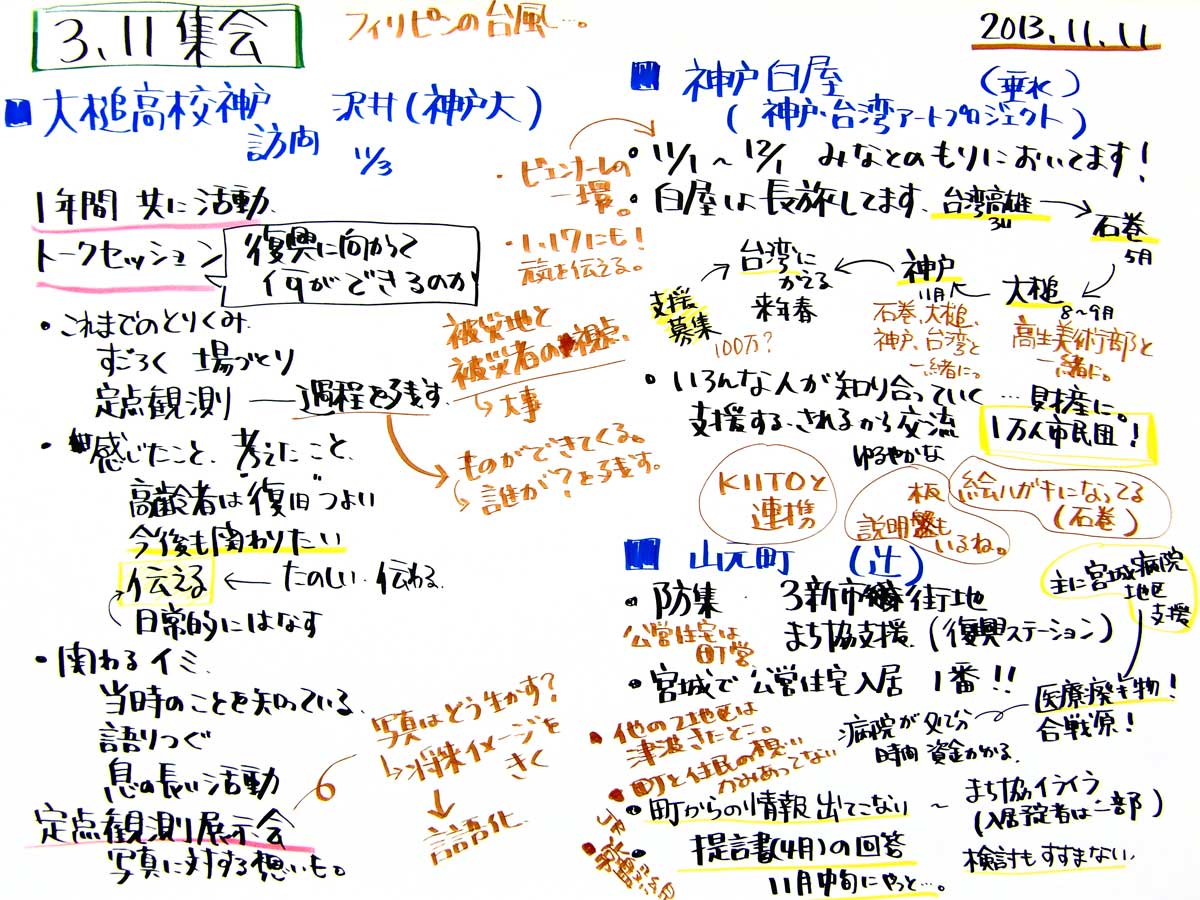 3.11集会
フィリピンの台風…。
2013.11.11
■大槌高校神戸訪問
沢井(神戸大)
11/3
1年間 共に活動
トークセッション
復興に向かって
何ができるのか
・これまでのとりくみ
すごろく 場づくり
定点観測 ― 過程を残す
被災地と
被災者の視点
↳大事
ものができてくる。
誰が?を残す。
・感じたこと、考えたこと、
高齢者は復旧づよい
今後も関わりたい
伝える ← たのしい・伝わる
日常的にはなす
・関わるイミ
当時のことを知っている
語りつぐ
息の長い活動
定点観測展示会
写真に対する想いも。
写真はどう生かす?
↳将来イメージを
きく
言語化
■神戸白屋 (垂水)
(神戸・台湾アートプロジェクト)
・11/1~12/1 みなとのもりにおいてます!
・ビエンナーレの
一環。
・1.17にも!
・白屋は長旅してます、台湾高雄
3/4
→ 石巻
5月
大槌
8~9月
高生美術部と
一緒に。
神戸
11月
石巻、大槌、
神戸、台湾と
一緒に。
台湾に
かえる
来春
支援
募集
100万?
・いろんな人が知り合っていく…財産に。
支援する、されるから交流
1万人市民団!
ゆるやかな
KIITOと
連携
板
説明盤も
いるね。
絵ハガキになってる
(石巻)
■山元町 (辻)
・防集 3新市街地
公営住宅は
町営
まち協支援 (復興ステーション)
主に宮城病院
地区
支援
・宮城で公営住宅入居 1番!!
医療廃棄物!
合戦原!
病院が処分
時間 資金かかる
・他の2地区は
津波きたとこ。
・町と住民の想い
かみあってない
・町からの情報出てこない ~ まち協イライラ
(入居予定者は一部)
・提言書(4月)の回答
11月中旬にやっと…。
検討もすすまない
・JR
常磐線